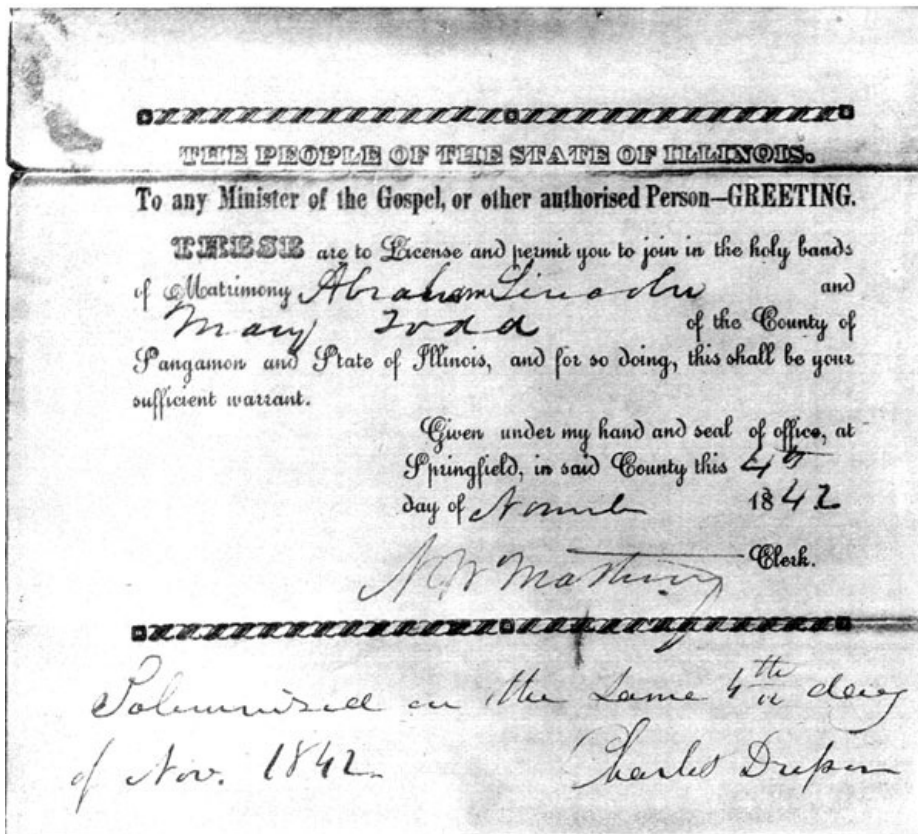 THE PEOPLE OF THE STATE OF ILLINOIS.
To any Minister of the Gospel, or other authorised Person—GREETING.
THESE are to License and permit you to join in the holy bands
of Matrimony Abraham Lincoln and
Mary Todd of the County of
Sangamon and State of Illinois, and for so doing, this shall be your
sufficient warrant.
Given under my hand and seal of office, at
Springfield, in said County this 4th
day of November 1842
Clerk.
N W Matheny
Solemnised on the same 4th day
of Nov. 1842. Charles Dresser